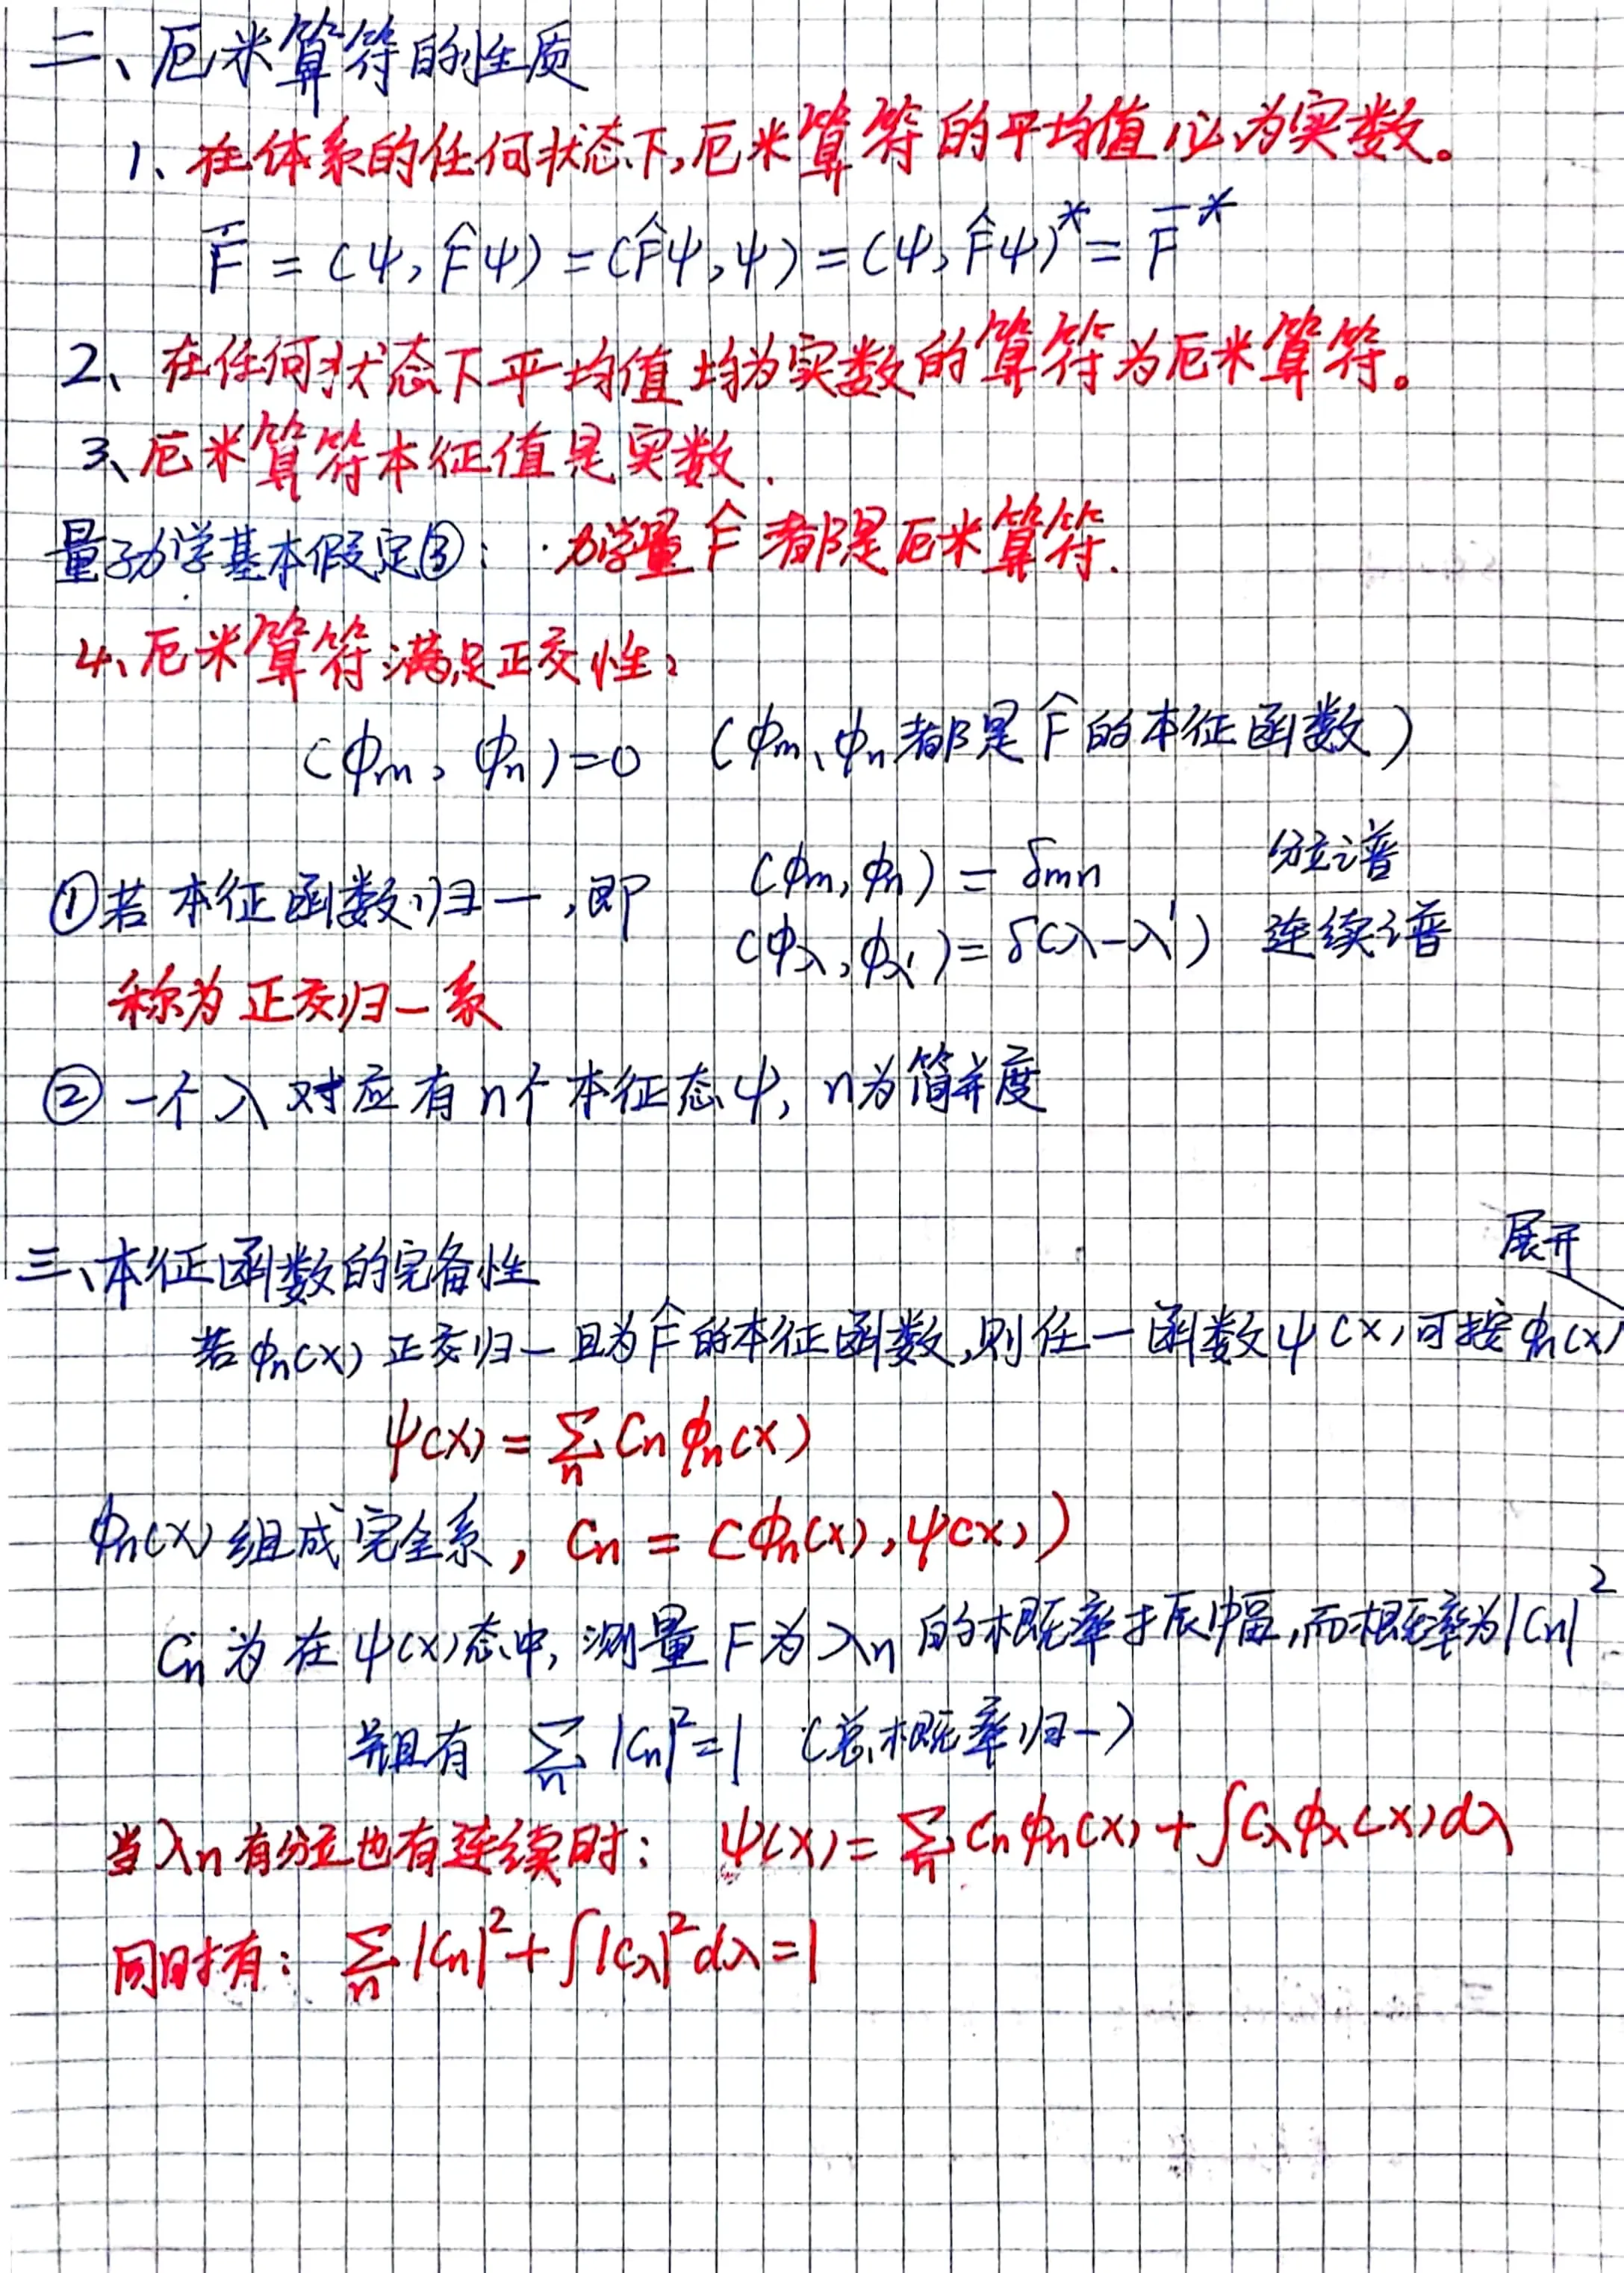 二、厄米算符的性质
1、在体系的任何状态下,厄米算符的平均值必为实数。
F̅ = (ψ, F̂ψ) = (F̂ψ, ψ) = (ψ, F̂ψ)* = F̅*
2、在任何状态下平均值均为实数的算符为厄米算符。
3、厄米算符本征值是实数.
量子力学基本假定③: 力学量 F̂ 都是厄米算符.
4、厄米算符满足正交性:
(φm, φn)=0 (φm、φn都是F̂的本征函数)
①若本征函数归一,即 (φm, φn) = δmn 分立谱
(φλ, φλ') = δ(λ-λ') 连续谱
称为正交归一系
②一个λ对应有n个本征态ψ, n为简并度
三、本征函数的完备性
展开
若φn(x)正交归一且为F̂的本征函数,则任一函数ψ(x)可按φn(x)
ψ(x) = ∑n Cn φn(x)
φn(x)组成完全系, Cn = (φn(x), ψ(x))
Cn为在ψ(x)态中,测量F为λn的概率振幅,而概率为|Cn|²
并且有 ∑n |Cn|²=1 (总概率归一)
当λn有分立也有连续时: ψ(x) = ∑n Cnφn(x) + ∫Cλφλ(x)dλ
同时有: ∑n |Cn|² + ∫|Cλ|²dλ=1